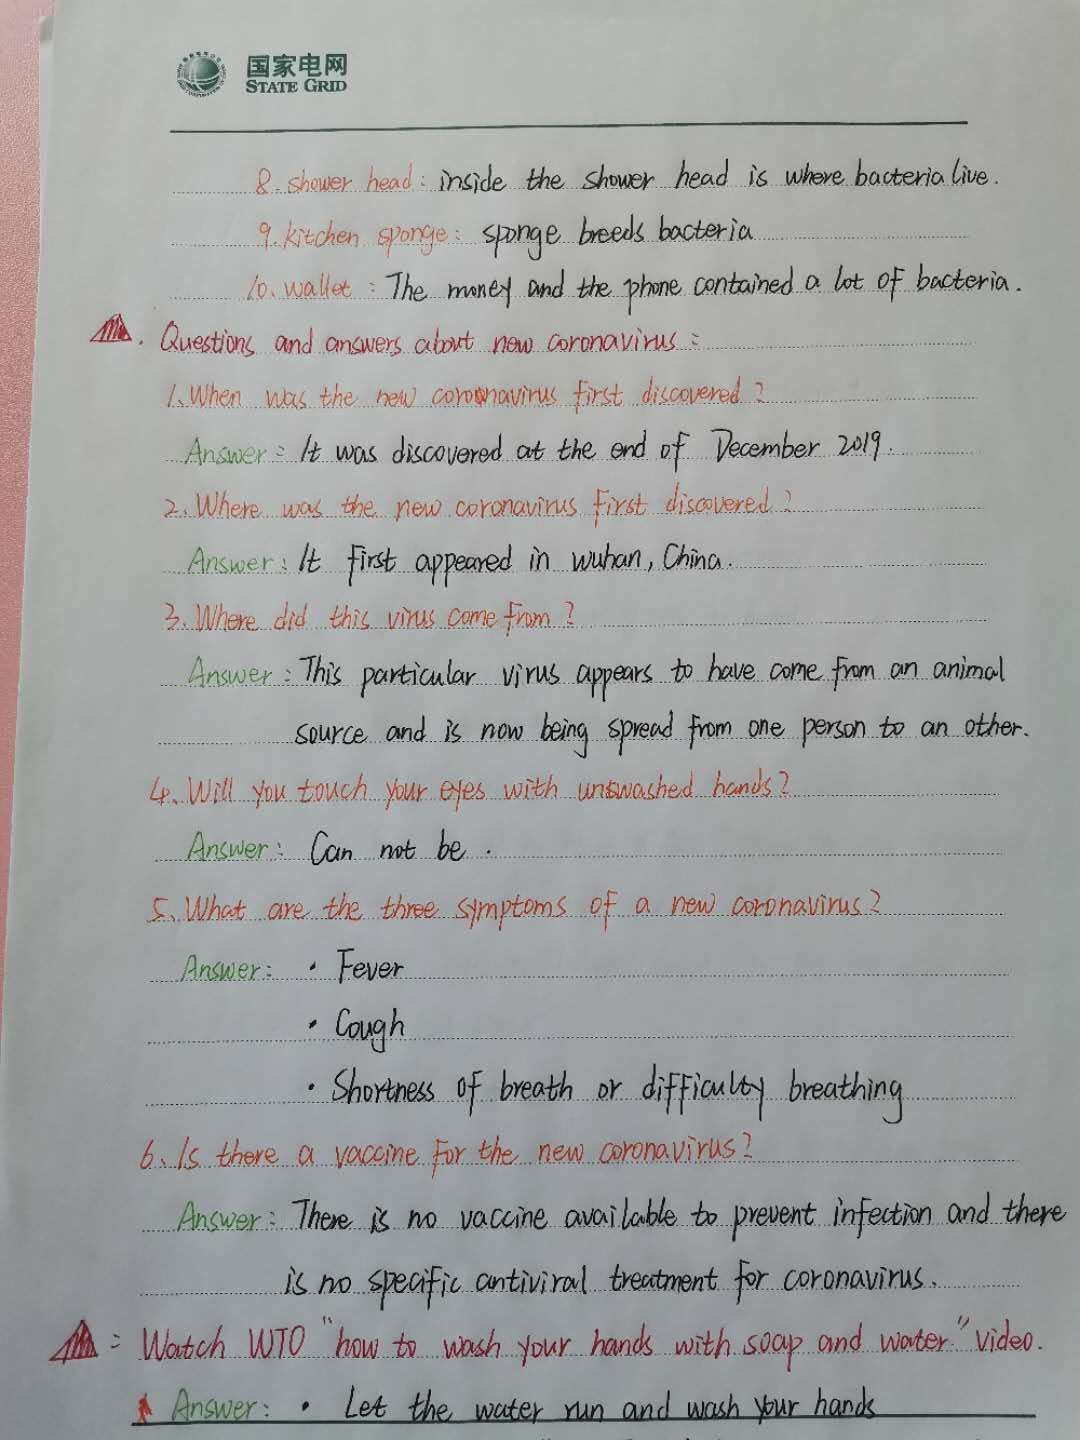 国家电网
STATE GRID
8. shower head: inside the shower head is where bacteria live.
9. kitchen sponge: sponge breeds bacteria
10. wallet: The money and the phone contained a lot of bacteria.
Questions and answers about new coronavirus:
1. When was the new coronavirus first discovered?
Answer: It was discovered at the end of December 2019.
2. Where was the new coronavirus first discovered?
Answer: It first appeared in wuhan, China.
3. Where did this virus come from?
Answer: This particular virus appears to have come from an animal
source and is now being spread from one person to an other.
4. Will you touch your eyes with unwashed hands?
Answer: Can not be.
5. What are the three symptoms of a new coronavirus?
Answer: • Fever
• Cough
• Shortness of breath or difficulty breathing
6. Is there a vaccine for the new coronavirus?
Answer: There is no vaccine available to prevent infection and there
is no specific antiviral treatment for coronavirus.
= Watch WTO "how to wash your hands with soap and water." video.
Answer: • Let the water run and wash your hands